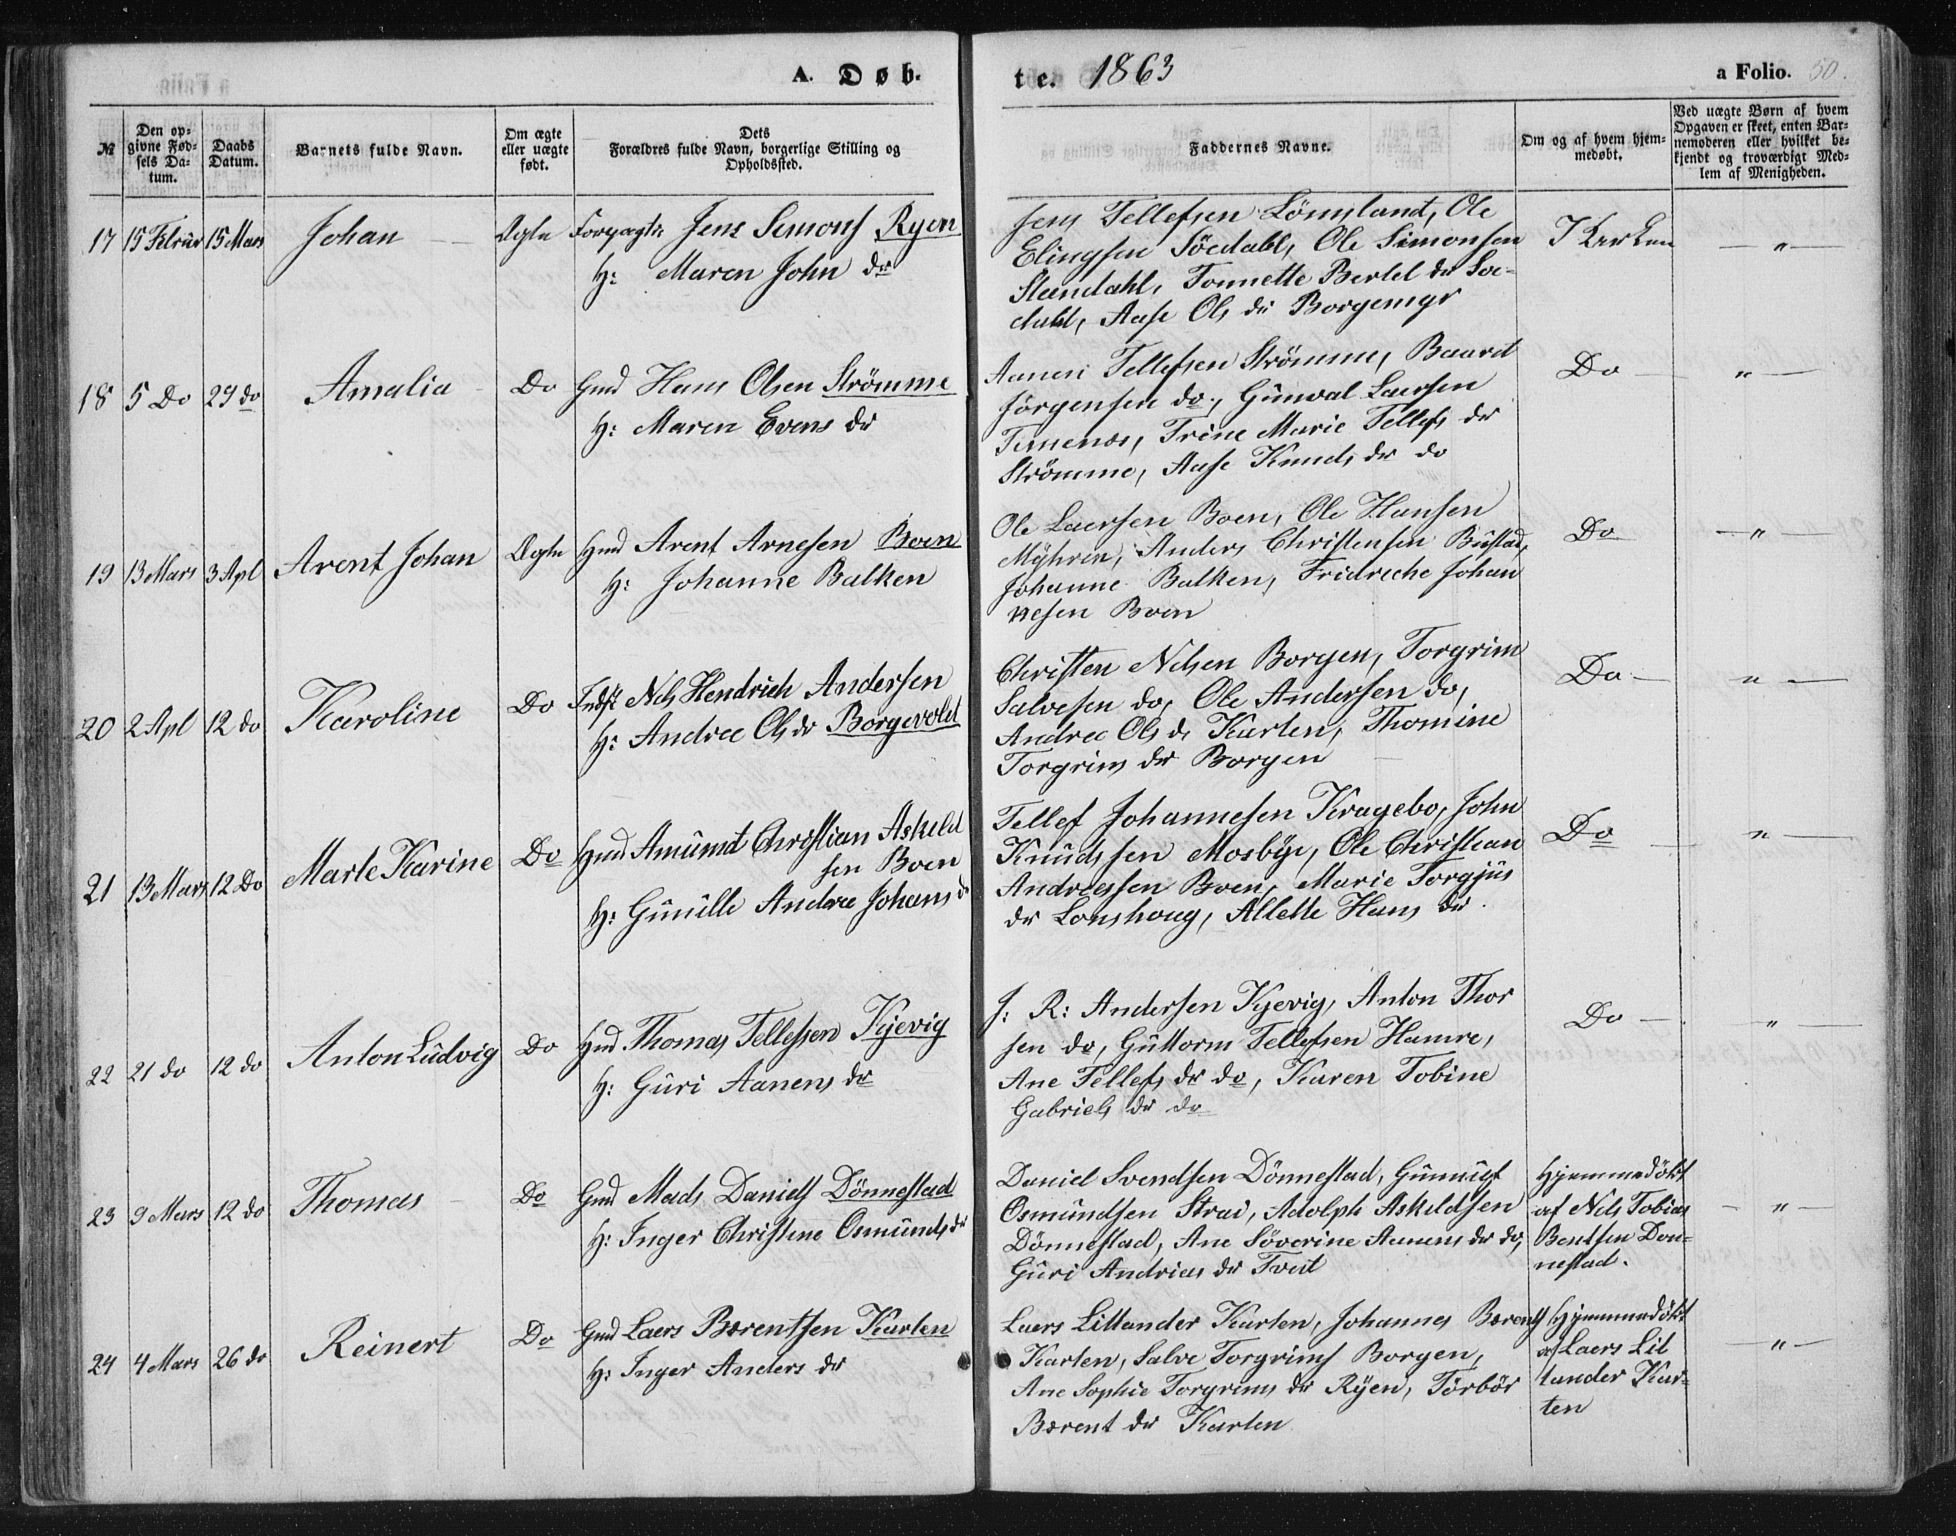 A. Døb-
te. 1863
a Folio. 50.
№
Den op-
givne Fød-
sels Da-
tum.
Daabs
Datum.
Barnets fulde Navn.
Om ægte
eller uægte
født.
Dets
Forældres fulde Navn, borgerlige Stilling og
Opholdssted.
Faddernes Navne.
Om og af hvem hjem-
medøbt.
Ved uægte Børn af hvem
Opgaven er skeet, enten Bar-
nemoderen eller hvilket be-
kjendt og troværdigt Med-
lem af Menigheden.
17 15 Februar 15 Mars Johan Ægte Forpagter Jens Simons Ryen
H: Maren John dr
Jens Tellefsen Lömsland, Ole
Elingsen Söedahl, Ole Simonsen
Steendahl, Tonnette Bertel dr Soe-
dahl, Aase Ols dr Borgemyr
I Kirken — " —
18 5 Do 29 do Amalia Do Gmd Hans Olsen Strömme
H: Maren Evens dr
Tellefsen Strömme, Baard
Jörgensen do, Gunval Laersen
Timenes, Trine Marie Tellefs dr
Strömme, Aase Knuds dr do
Do — " —
19 13 Mars 3 Apl Arent Johan Ægte Hmd Arent Arnesen Boen
H: Johanne Balken
Ole Laersen Boen, Ole Hansen
Myhren, Anders Christensen Bustad,
Johanne Balken, Fridreche Johan
nesen Boen
Do — " —
20 2 Apl 12 do Karoline Do Inds Nils Hendrich Andersen
H: Andrea Ols dr Borgevold
Christen Nilsen Borgen, Torgrim
Salvesen do, Ole Andersen do,
Andrea Ols d. Karten, Thomine
Torgrims dr Borgen
Do — " —
21 13 Mars 12 Do Marte Karine Do Hmd Amund Christian Askeld
sen Boen
H: Gunille Andrea Johans d
Tellef Johannesen Kragebo, John
Knudssen Mosbye, Ole Christian
Andreassen Boen, Marie Torgjus
dr Lonshaug, Allette Hans dr
Do — " —
22 21 do 12 do Anton Ludvig Do Hmd Thomas Tellefsen Kjevig
H: Guri Aanens dr
J: R: Andersen Kjevig, Anton Thor
sen do, Guttorm Tellefsen Hamre,
Ane Tellefs dr do, Karen Tobine
Gabriels dr do
Do — " —
23 9 Mars 12 do Thomas Do Gmd Mads Daniels Dönnestad
H: Inger Christine Osmunds dr
Daniel Svendsen Dönnestad, Gunnulf
Osmundsen Strai, Adolph Askildsen
Dönnestad, Ane Söverine Aanens dr do,
Guri Andreas dr Tveit
Hjemmedöbt
af Nils Tobias
Bentsen Don-
nestad.
— " —
24 4 Mars 26 do Reinert Do Gmd Laers Bærentsen Karten
H: Inger Anders dr
Laers Littander Karten, Johannes Bærents
Karten, Salve Torgrims Borgen,
Ane Sophie Torgrims dr Ryen, Törbör
Bærent dr Karten
Hjemmedöbt
af Laers Lit
tander Kar-
ten
— " —